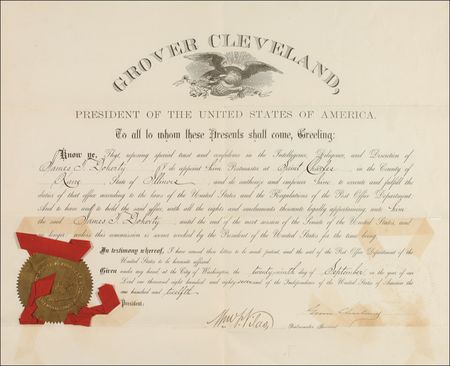 GROVER CLEVELAND,
PRESIDENT OF THE UNITED STATES OF AMERICA.
To all to whom these Presents shall come, Greeting:
Know ye, That, reposing special trust and confidence in the Intelligence, Diligence, and Discretion of
James T. Doherty, I do appoint him Postmaster at Saint Charles, in the County of
Kane, State of Illinois, and do authorize and empower him to execute and fulfill the
duties of that office according to the laws of the United States and the Regulations of the Post Office Department,
And to have and to hold the said office, with all the rights and emoluments thereunto legally appertaining, unto him
the said James T. Doherty, until the end of the next session of the Senate of the United States, and
no longer, unless this commission is sooner revoked by the President of the United States for the time being.
In testimony whereof, I have caused these letters to be made patent, and the seal of the Post Office Department of the
United States to be hereunto affixed.
Given under my hand at the City of Washington, the twenty-ninth day of September, in the year of our
Lord one thousand eight hundred and eighty-seven and of the Independence of the United States of America the
one hundred and twelfth.
President:
Grover Cleveland
Wm. F. Vilas
Postmaster General